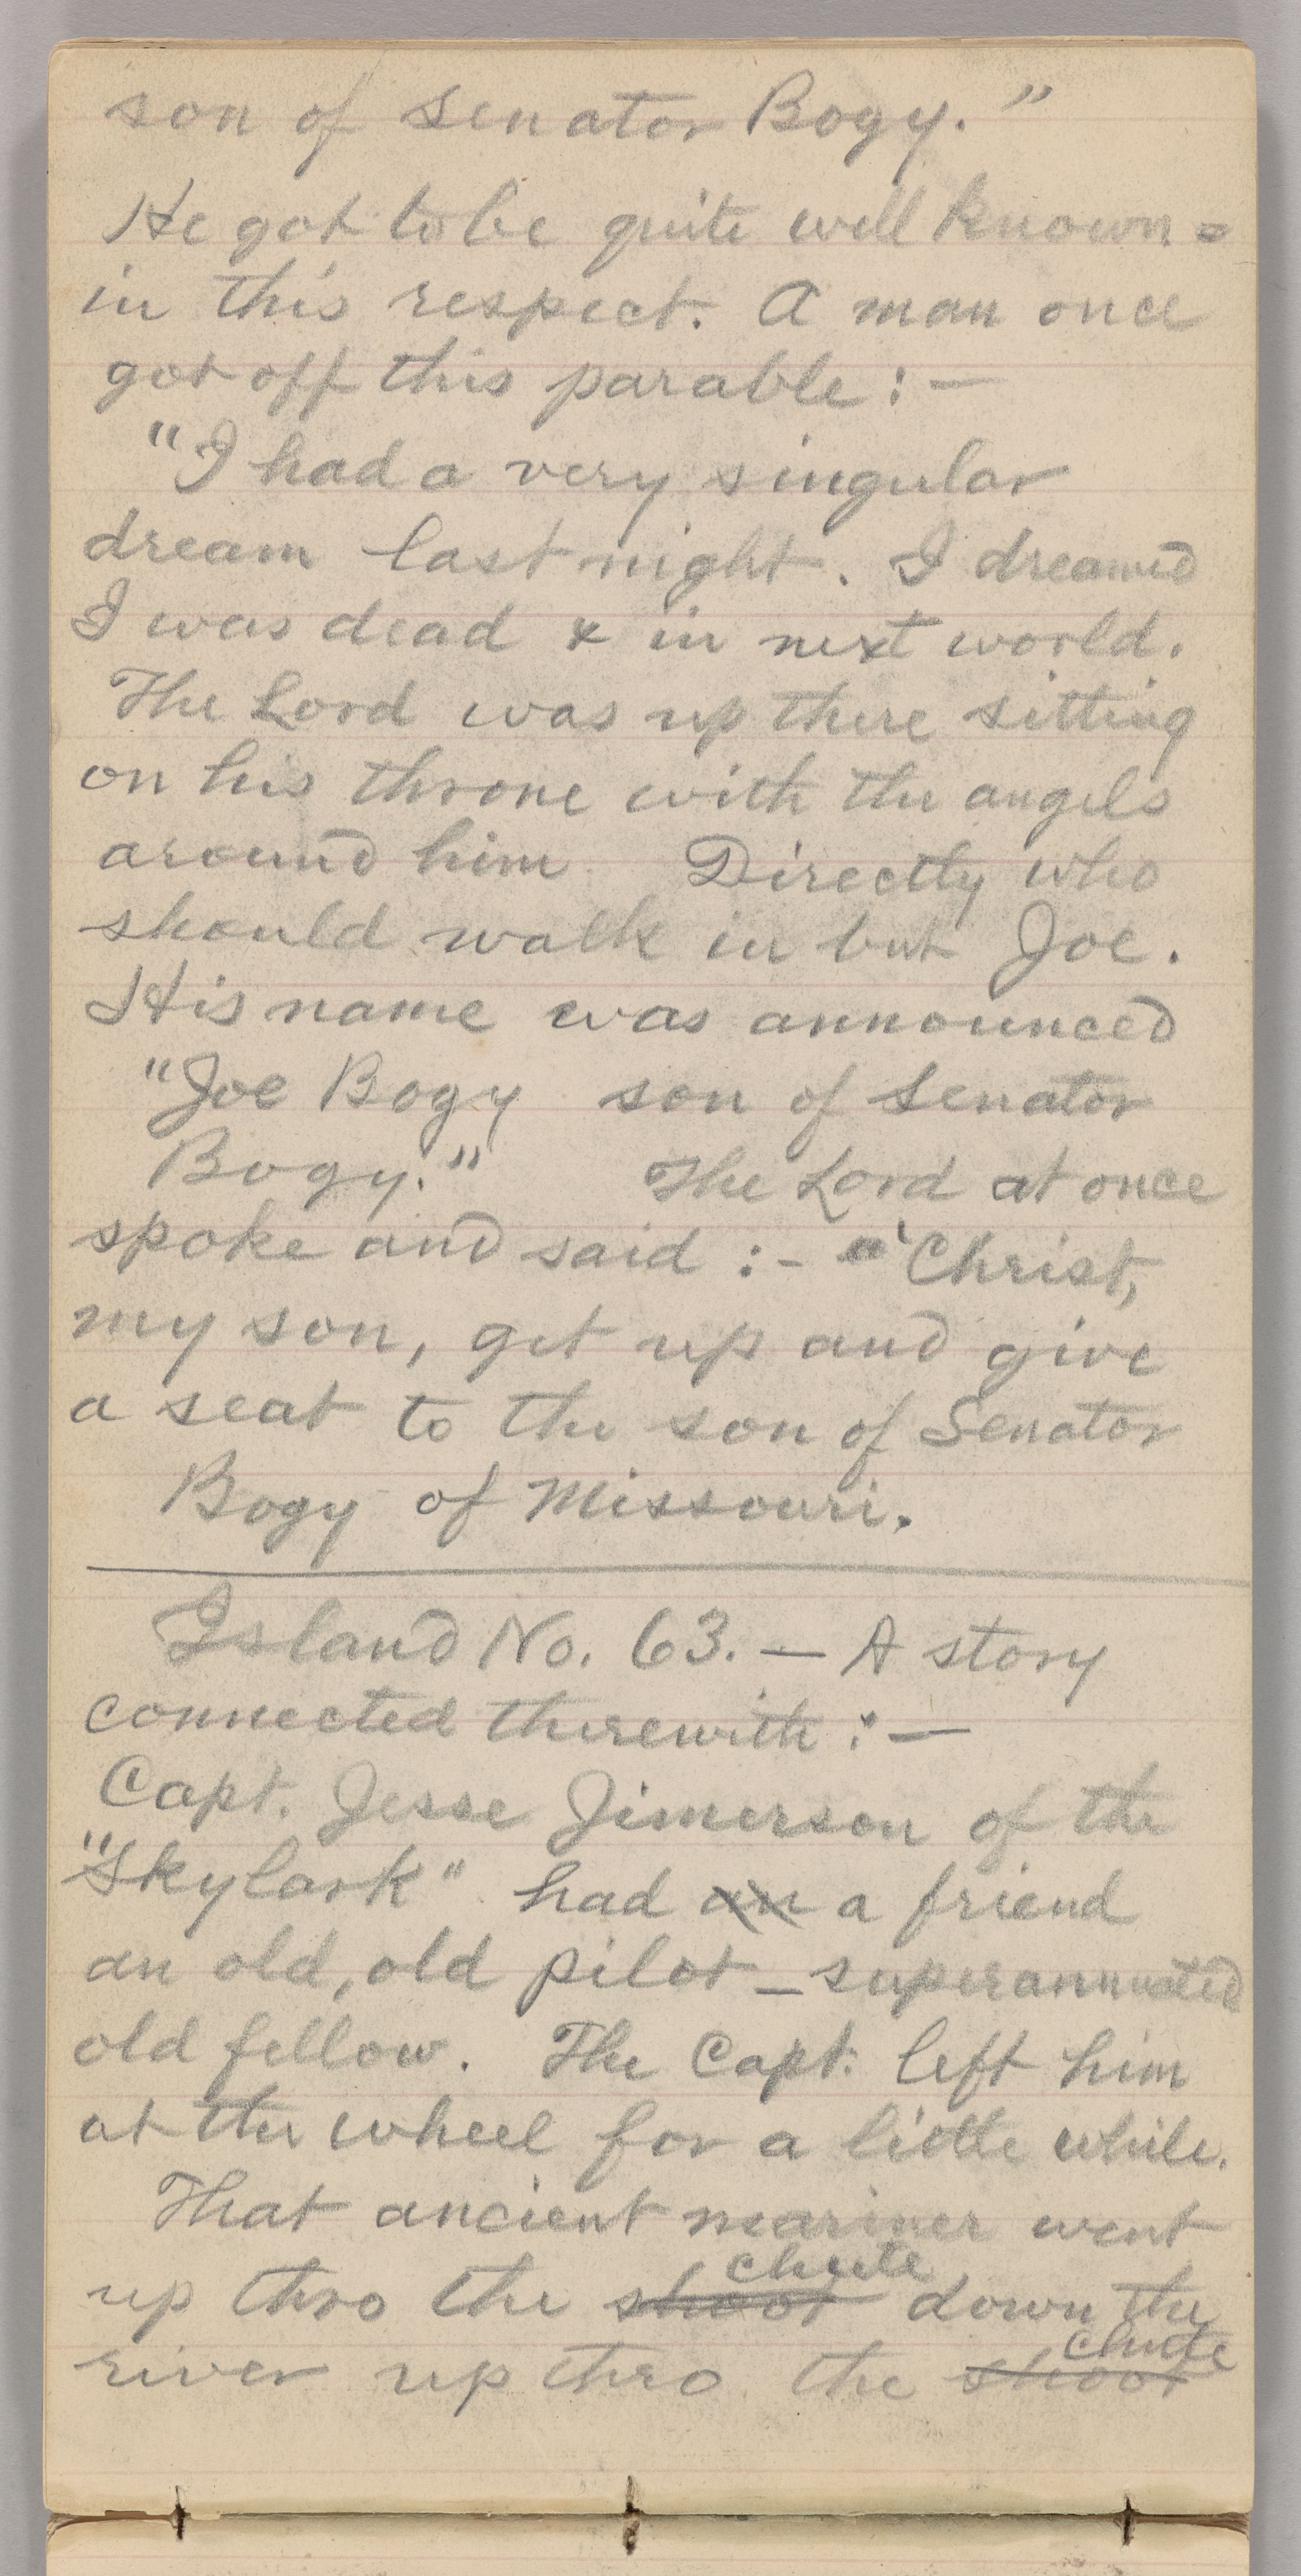 son of Senator Bogy."
He got to be quite well known =
in this respect. A man once
got off this parable :—
"I had a very singular
dream last night. I dreamed
I was dead & in next world.
The Lord was up there sitting
on his throne with the angels
around him Directly who
should walk in but Joe.
His name was announced
"Joe Bogy son of Senator
Bogy." The Lord at once
spoke and said :- "Christ,
my son, get up and give
a seat to the son of Senator
Bogy of Missouri.
Island No. 63. — A story
connected therewith :—
Capt. Jesse Jimerson of the
"Skylark" had an a friend
an old, old pilot — superannuated
old fellow. The Capt. left him
at the wheel for a little while.
That ancient mariner went
chute
up thro the shoot down the
chute
river up thro the shoot